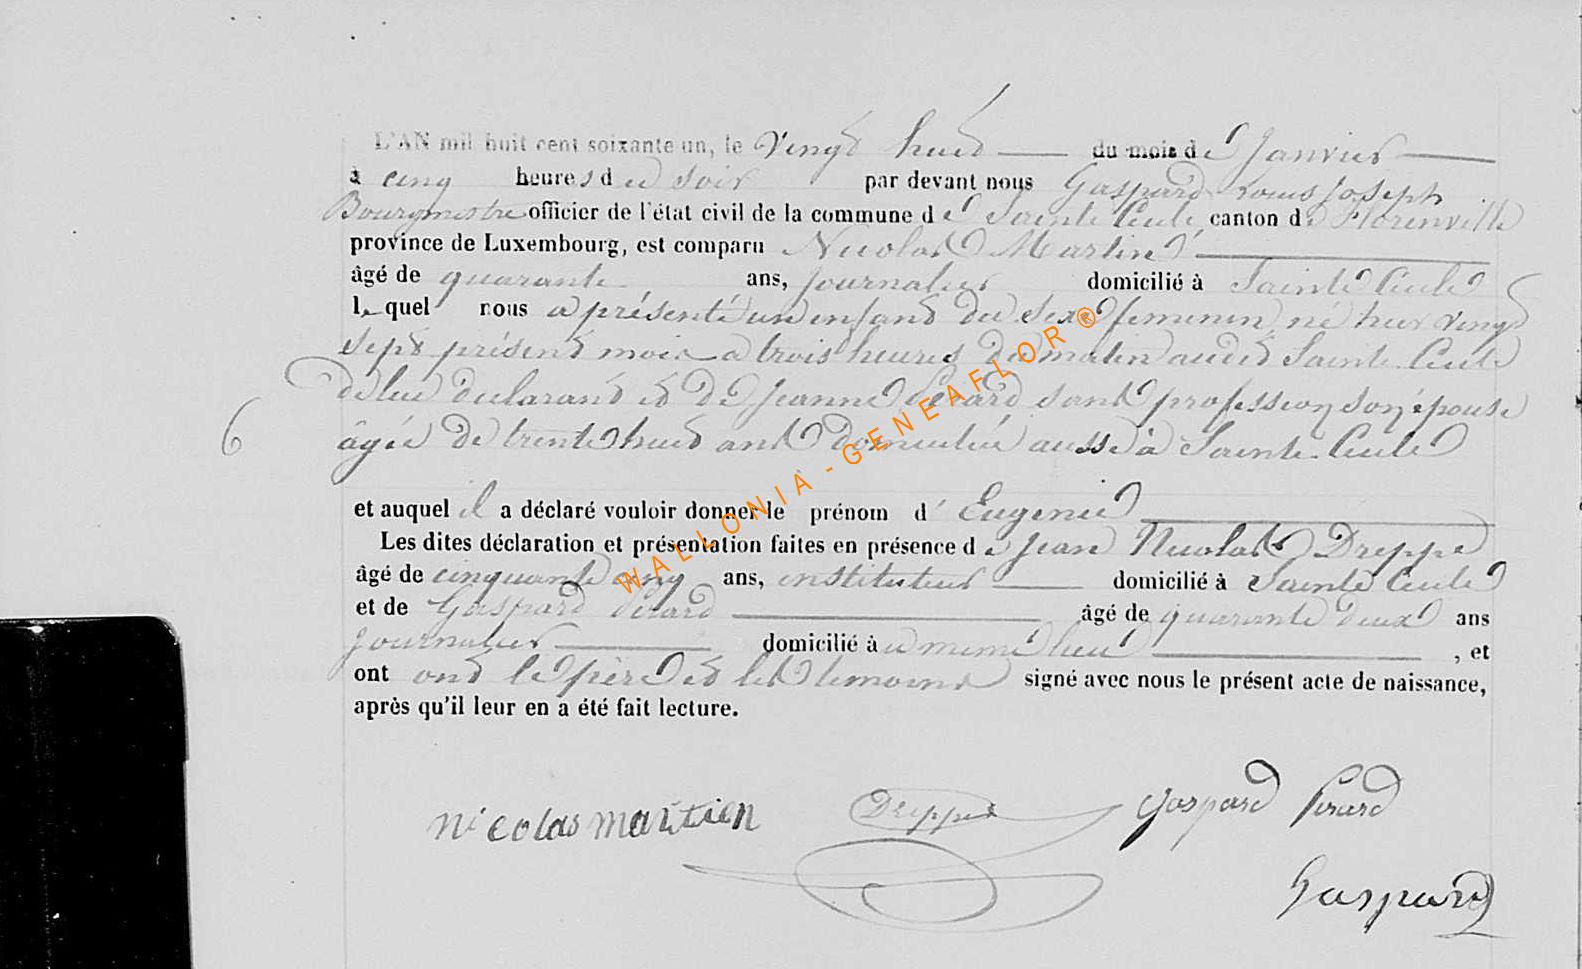 L'AN mil huit cent soixante un, le vingt huit du mois de Janvier
à cinq heures du soir par devant nous Gaspard Louis Joseph
Bourgmestre officier de l'état civil de la commune de Sainte Cécile, canton de Florenville
province de Luxembourg, est comparu Nicolas Martin
âgé de quarante ans, journalier domicilié à Sainte Cécile
lequel nous a présenté un enfant du sexe féminin, né hier vingt
sept présent mois à trois heures du matin audit Sainte Cécile
de lui déclarant et de Jeanne Pérard sans profession son épouse
âgée de trente huit ans domiciliée aussi à Sainte Cécile
6
et auquel il a déclaré vouloir donner le prénom d'Eugénie
Les dites déclaration et présentation faites en présence de Jean Nicolas Dreppe
âgé de cinquante cinq ans, instituteur domicilié à Sainte Cécile
et de Gaspard Pérard âgé de quarante deux ans
journalier domicilié à u même lieu, et
ont ont le père et les témoins signé avec nous le présent acte de naissance,
après qu'il leur en a été fait lecture.
nicolas martien Dreppe Gaspard Pirard
Gaspard
WALLONIA-GENEAFLOR®